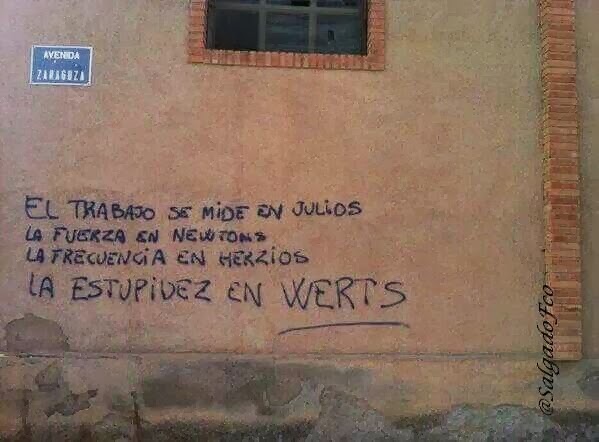 AVENIDA
ZARAGOZA
EL TRABAJO SE MIDE EN JULIOS
LA FUERZA EN NEWTONS
LA FRECUENCIA EN HERZIOS
LA ESTUPIDEZ EN WERTS
@SalgadoFco